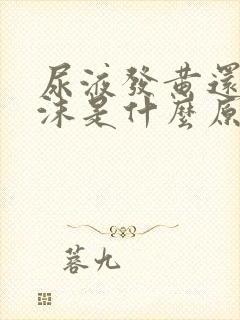 尿液發黃還
沫是什麼原
蓉九